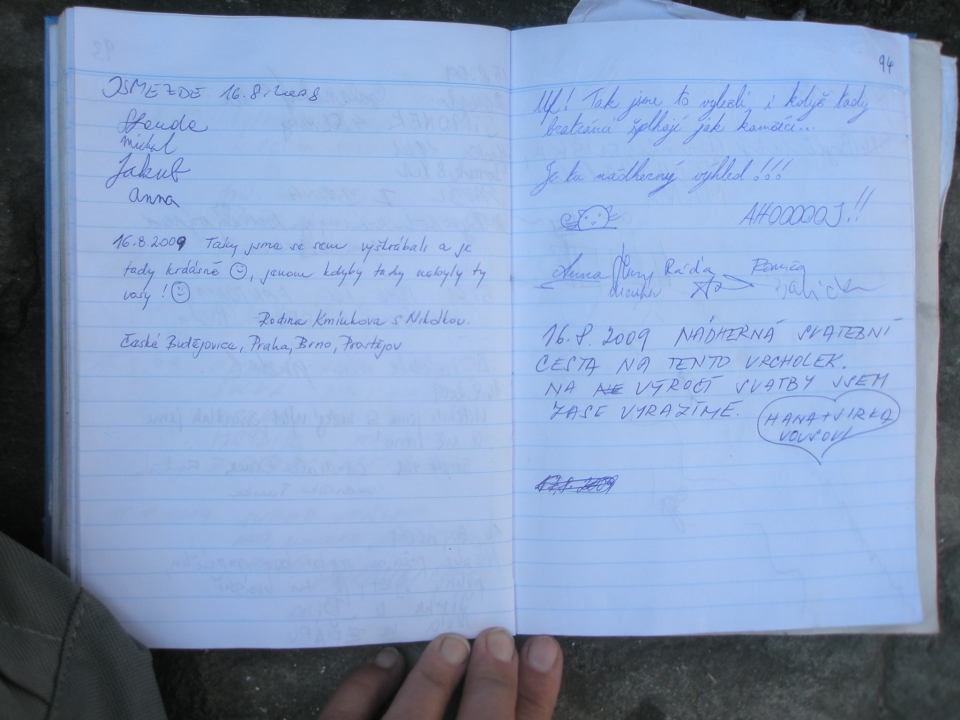 JSME ZDE 16.8.2008
Standa
michal
Jakub
anna
16.8.2009 Taky jsme se sem vyškrábali a je
tady krásně, jenom kdyby tady nebyly ty
vosy!
Rodina Kmínkova s Nikolkou.
České Budějovice, Praha, Brno, Prostějov
94
Uf! Tak jsme to vylezli i když tady
bratránci šplhají jak kamzíci...
Je tu nádherný výhled!!!
AHOOOOOJ!!
Anna Radja
16.8.2009 NÁDHERNÁ SVATEBNÍ
CESTA NA TENTO VRCHOLEK.
NA VÝROČÍ SVATBY JSEM
ZASE VYRAZÍME.
HANA + JIRKA
VOUSOVI